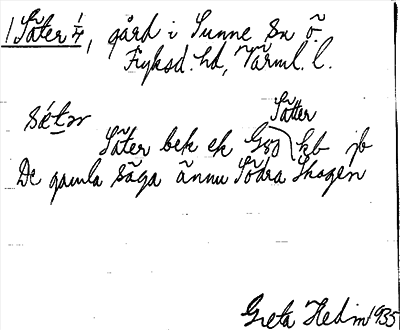 1 Säter 1/4, gård i Sunne Sn Ö.
Fryksd. hd, Värml. l.
Sätter
Säter bek ek G kb jb
De gamla säga ännu Södra Skogen
Greta Hedin 1935